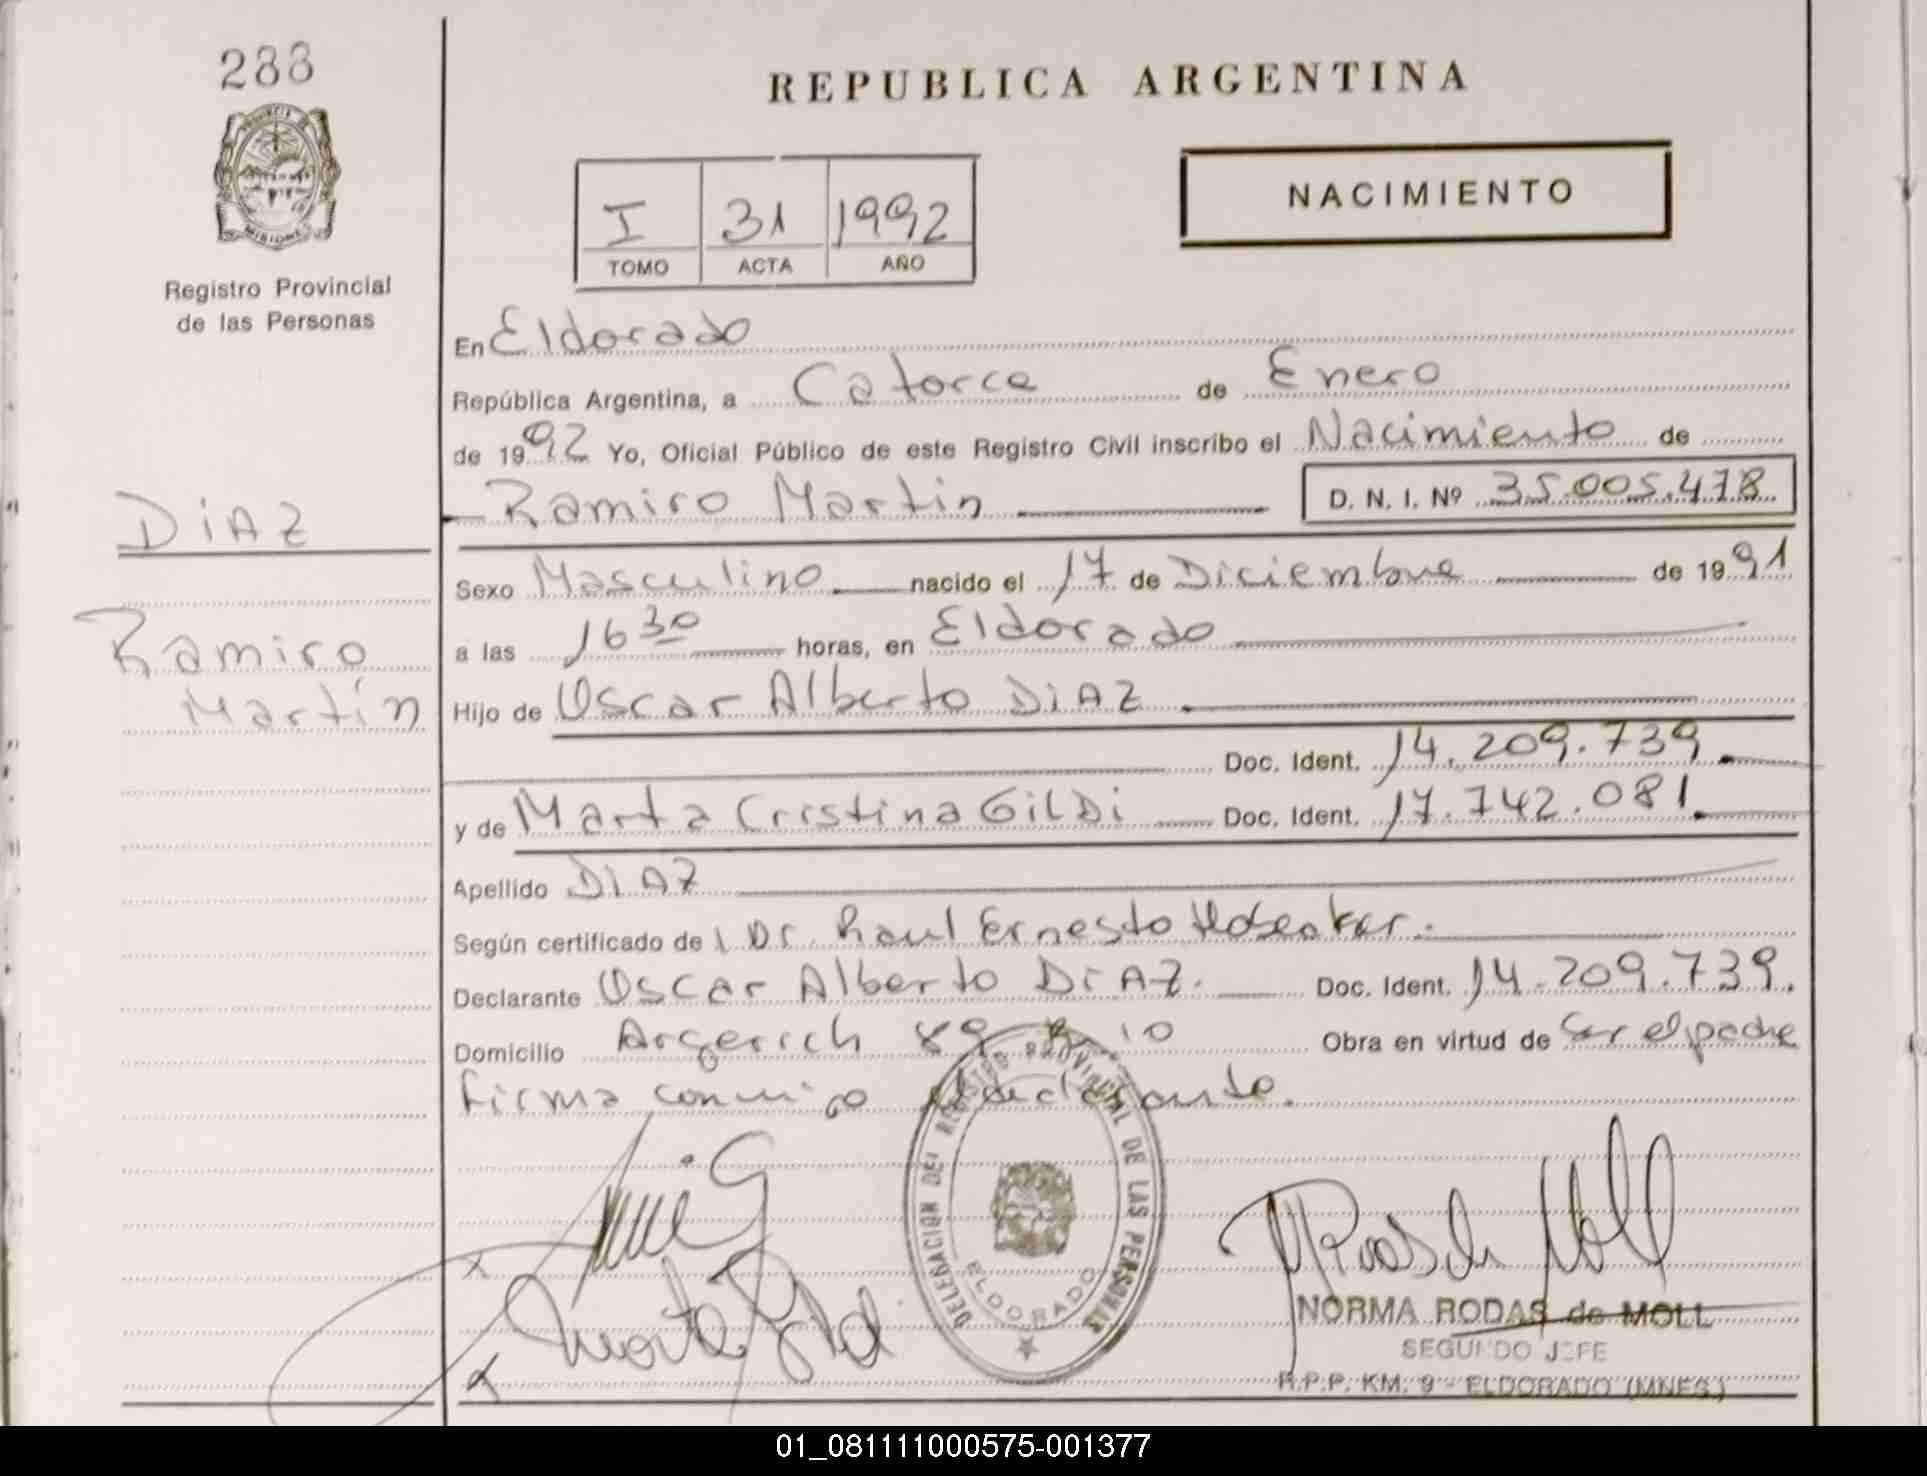 288
REPUBLICA ARGENTINA
PROVINCIA DE MISIONES
Registro Provincial
de las Personas
I 31 1992
TOMO ACTA AÑO
NACIMIENTO
En Eldorado
República Argentina, a Catorce de Enero
de 1992 Yo, Oficial Público de este Registro Civil inscribo el Nacimiento de
Ramiro Martin D. N. I. Nº 35.005.478
DiAZ
Sexo Masculino nacido el 17 de Diciembre de 1991
a las 16 30 horas, en Eldorado
Ramiro
Martín
Hijo de Oscar Alberto DiAZ
Doc. Ident. 14.209.739
y de Marta Cristina GilDi Doc. Ident. 17.742.081
Apellido DIAZ
Según certificado de Dr. Raul Ernesto
Declarante Oscar Alberto DiAZ. Doc. Ident. 14.209.739.
Domicilio Argerich 89 10 Obra en virtud de Ser el padre
firma conmigo el declarante.
DELEGACION DEL REGISTRO PROVINCIAL DE LAS PERSONAS
ELDORADO
NORMA RODAS de MOLL
SEGUNDO JEFE
R.P.P. KM. 9 - ELDORADO (MNES.)
01_081111000575-001377